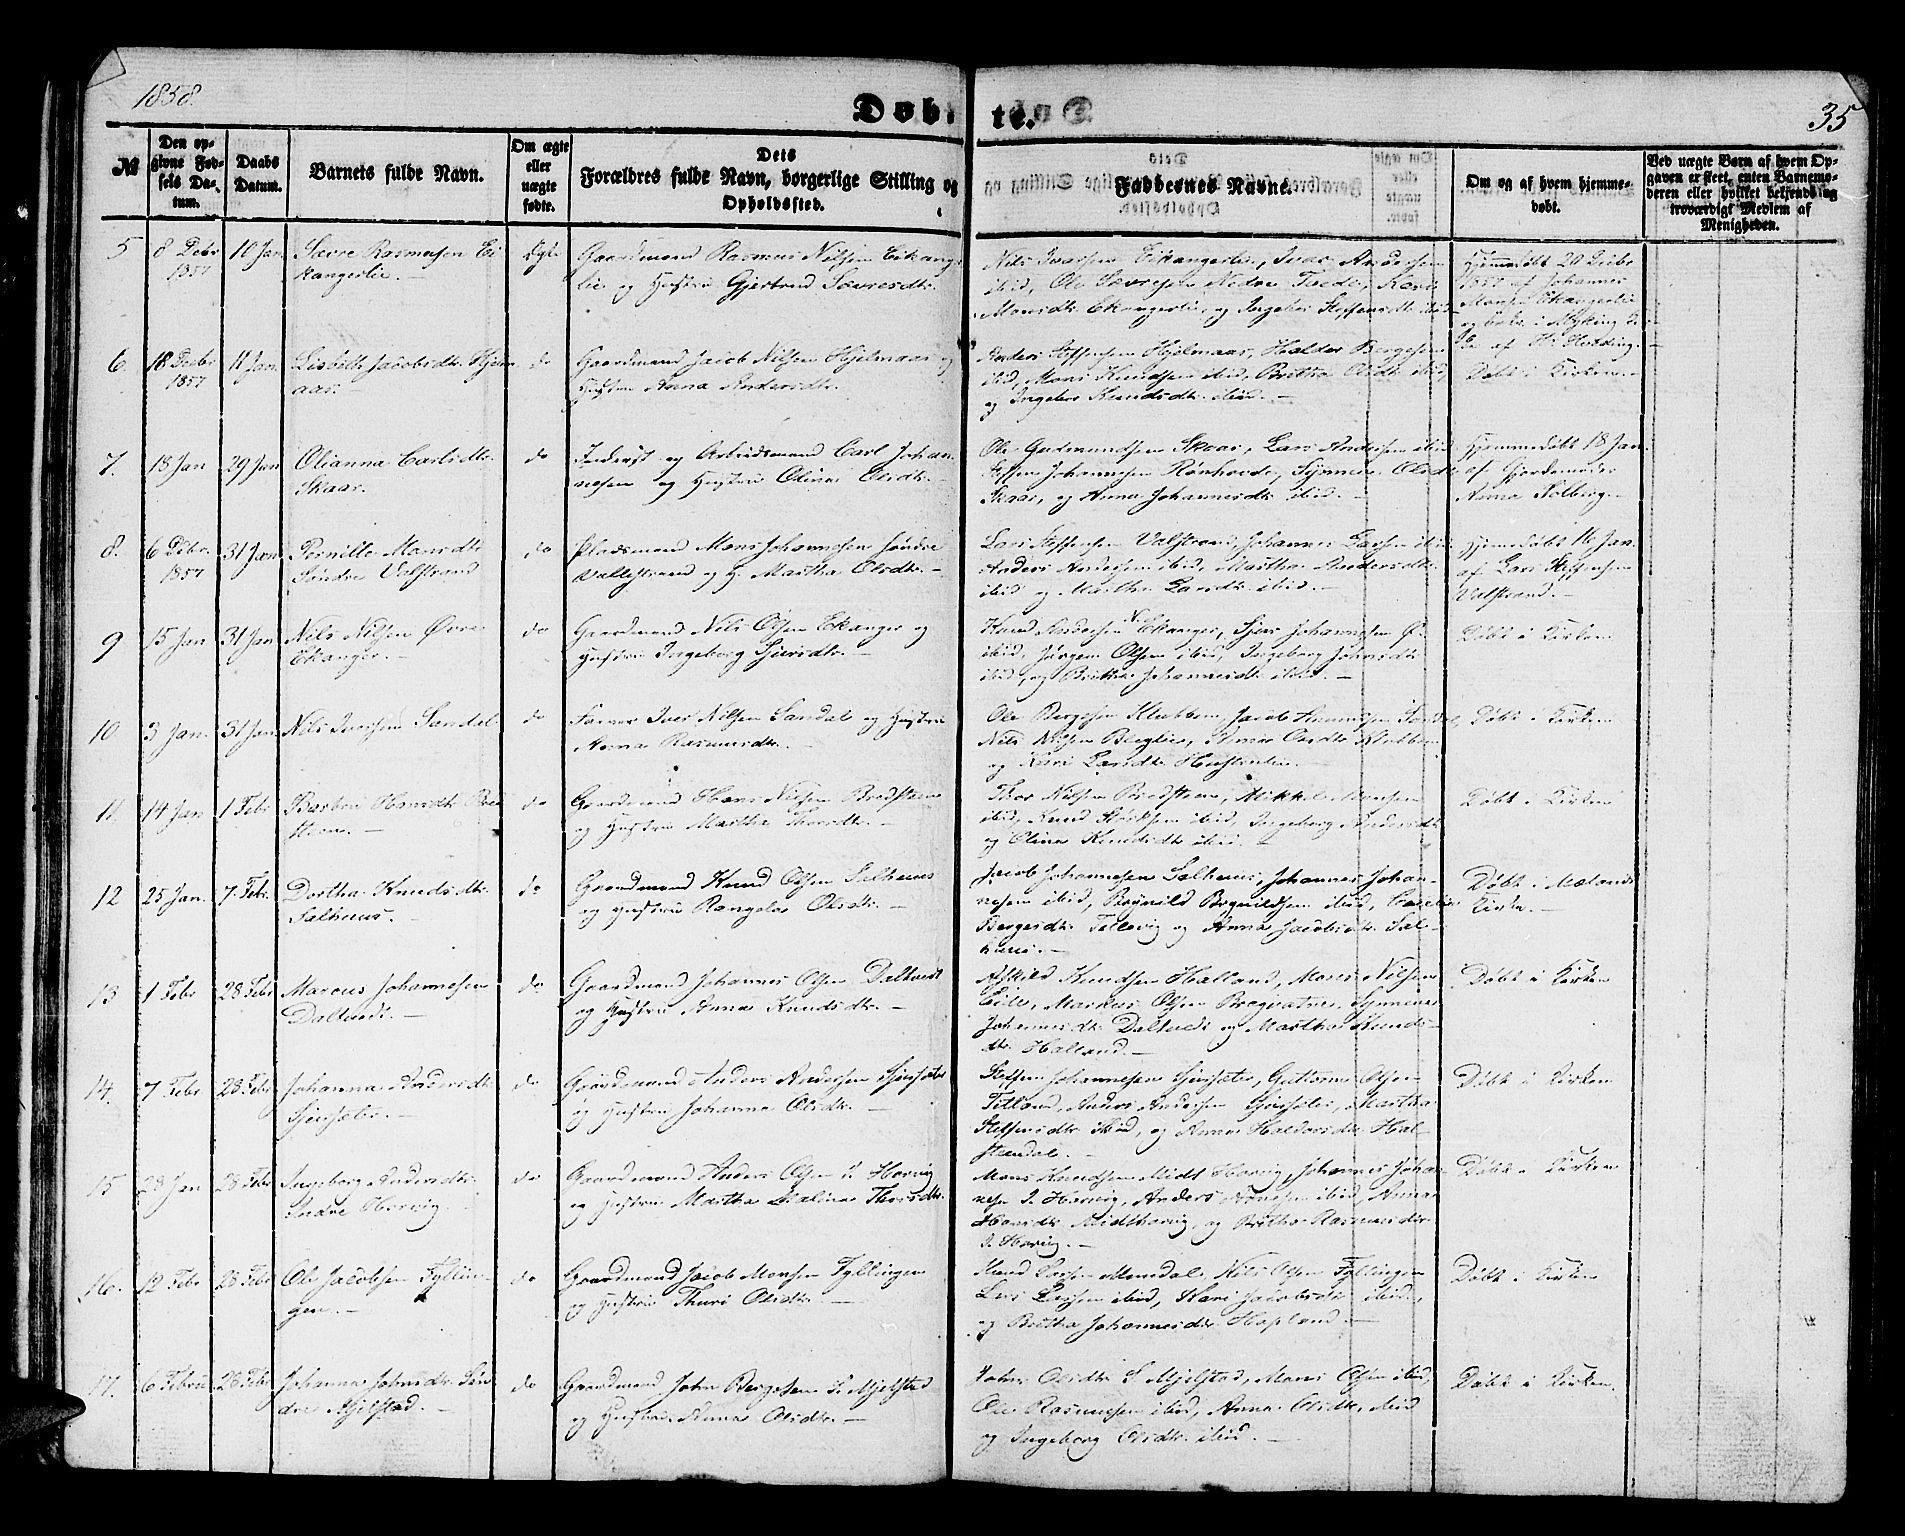 1858.
Døbte.
35
№
Den opgivne Fødsels Datum.
Daabs Datum.
Barnets fulde Navn.
Om ægte eller uægte fødte.
Dets Forældres fulde Navn, borgerlige Stilling og Opholdssted.
Faddernes Navne.
Om og af hvem hjemmedøbt.
Ved uægte Børn af hvem Opgaven er skeet, enten Barnemoderen eller hvilket bekjendt og troværdigt Medlem af Menigheden.
5 8 Debr 10 Jan Rasmussen Ei Ægte Gaardmand Rasmus Nilsen Eikanger
1857 kangerlie.- lie og Hustru Gjertrud
Nils Ivarsen Eikangerlie, Ivar Andersen Hjemmedøbt 20 Debr
ibid, Ole Nedre Kari 1857 af Johannes
Monsdtr Ekangerlie, og Ingeber Steffensdtr ibid Monsen Ekangerlie
6. 18 Debr 11 Jan. Lisbeth Jacobsdtr Hjelm do Gaardmand Jacob Nilsen Hjelmaas og
1857 aas. Hustru Anna Andersdtr.
Anders Steffensen Hjelmaas, Haldor Bergesen
ibid, Mons Knudsen ibid, Britha Olsdtr ibid, Døbt i Kirken
og Ingeber Knudsdtr. ibid.-
7. 18 Jan 29 Jan Olianna Carlsdtr do Inderst og Arbeidsmand Carl Johan
Skaar. nesen og Hustru Olina Olsdtr.-
Ole Gudmundsen Skaar, Lars Andersen ibid Hjemmedøbt 18 Jan.
Steffen Johannesen Rønhovde, Synneve Olsdtr af Gjordemoder
Skaar, og Anna Johannesdtr ibid.- Anna Solberg.-
8. 6 Debr. 31 Jan Pernille Monsdtr do Pladsmand Mons Johannesen Søndre
1857 Søndre Valstrand Vallestrand og H. Martha Olsdtr.-
Lars Steffensen Valstrand, Johannes Larsen ibid Hjemmedøbt 16 Jan.
Anders Andersen ibid, Martha Andersdtr af Lars Steffensen
ibid og Martha Larsdtr ibid.- Valstrand.-
9 15 Jan 31 Jan Nils Nilsen Øvre do Gaardmand Nils Olsen Ekanger og
Ekanger.- Hustru Ingeborg Sjursdtr.-
Knud Andersen N. Ekanger, Sjur Johannesen Ø. Døbt i Kirken
ibid, Jørgen Olsen ibid, Ingeborg Johnsdtr
ibid, og Britha Johannesdtr ibid.-
10 3 Jan. 31 Jan Nils Iversen Sandal do Iver Nilsen Sandal og Hustru
Anna Rasmusdtr.
Ole Bergesen Klubben, Jacob Døbt i Kirken
Nils Nilsen Berglie, Anna Olsdtr Klubben
og Kari Larsdtr
11 14 Jan 1 Febr Barbru Hansdtr Bred do Gaardmand Hans Nilsen Bredsteen
steen.- og Hustru Martha Thorsdtr.-
Thor Nilsen Bredsteen, Mikkel Monsen Døbt i Kirken
ibid, Knud ibid, Ingeborg Andersdtr
og Olina Knudsdtr ibid.-
12 25 Jan. 7 Febr. Dortha Knudsdtr. do Gaardmand Knud Olsen Salhuus
Salhuus.- og Hustru Rangela Olsdtr.-
Jacob Johannesen Salhuus, Johannes Johan- Døbt i Mælands
nesen ibid, Brynild Brynildsen ibid, Kirke.-
Bergesdtr Tellevig og Anna Jacobsdtr Sal-
huus.-
13 1 Febr 28 Febr Marcus Johannesen do Gaardmand Johannes Olsen Daltvedt
Daltvedt.- og Hustru Anna Knudsdtr.-
Knudsen Halland, Mons Nilsen Døbt i Kirken
Eide, Markus Olsen Synneve
Johannesdtr Daltvedt og Martha Knuds-
dtr. Halland.-
14. 7 Febr 28 Febr Johanna Andersdtr do Gaardmand Anders Andersen Sjursæter
Sjursæter.- og Hustru Johanna Olsdtr.-
Steffen Johannesen Sjursæter, Guttorm Olsen Døbt i Kirken
Titland, Anders Andersen Sjursæter, Martha
Steffensdtr ibid, og Anna Haldorsdtr Hal-
steendal.-
15 28 Jan 28 Febr Ingeborg Andersdtr do Gaardmand Anders Olsen I. Horvig
Indre Horvig.- og Hustru Martha Thorsdtr.
Mons Knudsen Midt Horvig, Johannes Johan- Døbt i Kirken
nesen I. Horvig, Anders Arnesen ibid, Anna
Hansdtr Midthorvig, og Britha Rasmusdtr
I. Horvig.-
16. 12 Febr 28 Febr Ole Jacobsen Fyllin- do Gaardmand Jacob Monsen Fyllingen
gen.- og Hustru Thuri Olsdtr.-
Knud Larsen Mundal, Nils Olsen Fyllingen Døbt i Kirken
Lars Larsen ibid, Kari Jacobsdtr ibid,
og Britha Johannesdtr Hopland.-
17. 6 Februr 28 Febr Johanna Johnsdtr Søn- do Gaardmand John Bergesen S. Mjelstad
dre Mjelstad.- og Hustru Anna Olsdtr.-
Olsdtr S. Mjelstad, Mons Olsen ibid, Døbt i Kirken.
Ole Rasmussen ibid, Anna Olsdtr, ibid
og Ingeborg Olsdtr. ibid.-